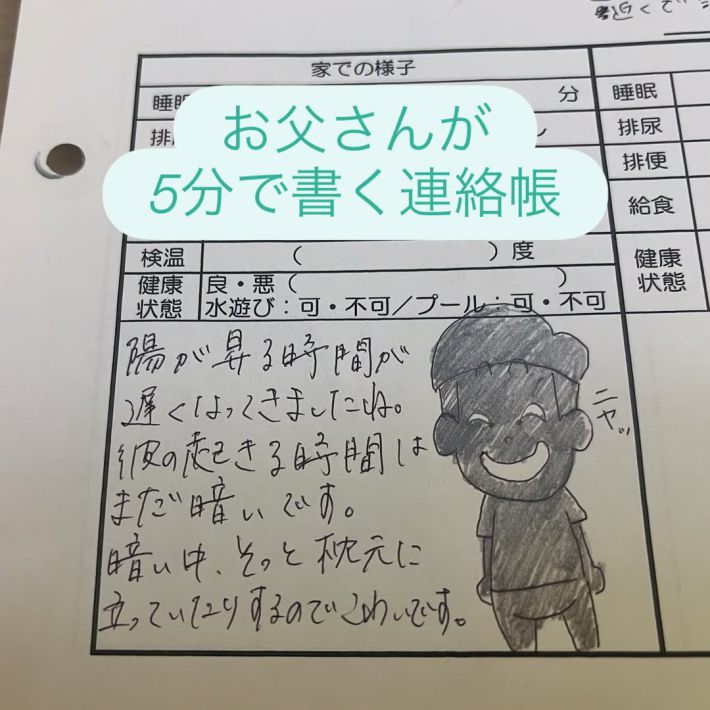 近くで
家での様子
睡眠 分 睡眠
お父さんが
5分で書く連絡帳
排尿
排便
給食
検温 ( )度
健康状態
健康状態 良・悪( )
水遊び:可・不可/プール:可・不可
陽が昇る時間が
遅くなってきましたね。
彼の起きる時間は
まだ暗いです。
暗い中、そっと枕元に
立っていたりするのでこわいです。
ニヤッ